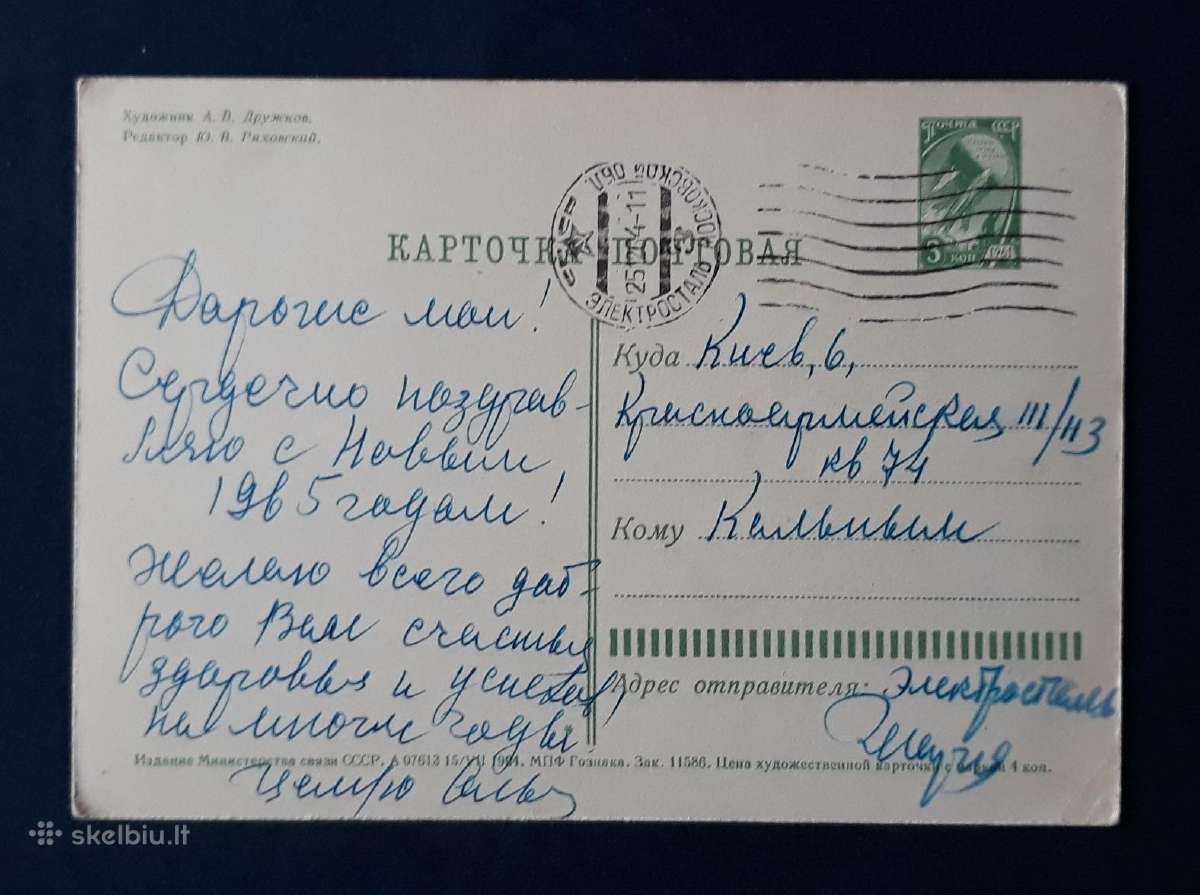 Художник А. В. Дружков.
Редактор Ю. В. Ряховский.
ПОЧТА СССР
6 1961
КОП
МОСКОВСКОЙ ОБЛ
251264-11
ЭЛЕКТРОСТАЛЬ
КАРТОЧКА ПОЧТОВАЯ
Дарогие мои!
Сердечно поздрав-
ляю с Новым
1965 годом!
Желаю всего доб-
рого Вам счастья
здоровья и успехов,
на многие годы
Целую Ольга
Куда Киев, 6,
Красноармейская III/113
кв 74
Кому
Адрес отправителя: Электросталь
Издание Министерства связи СССР. А 07613 15/VII 1964. МПФ Гознака. Зак. 11586. Цена художественной карточки с маркой 4 коп.
skelbiu.lt